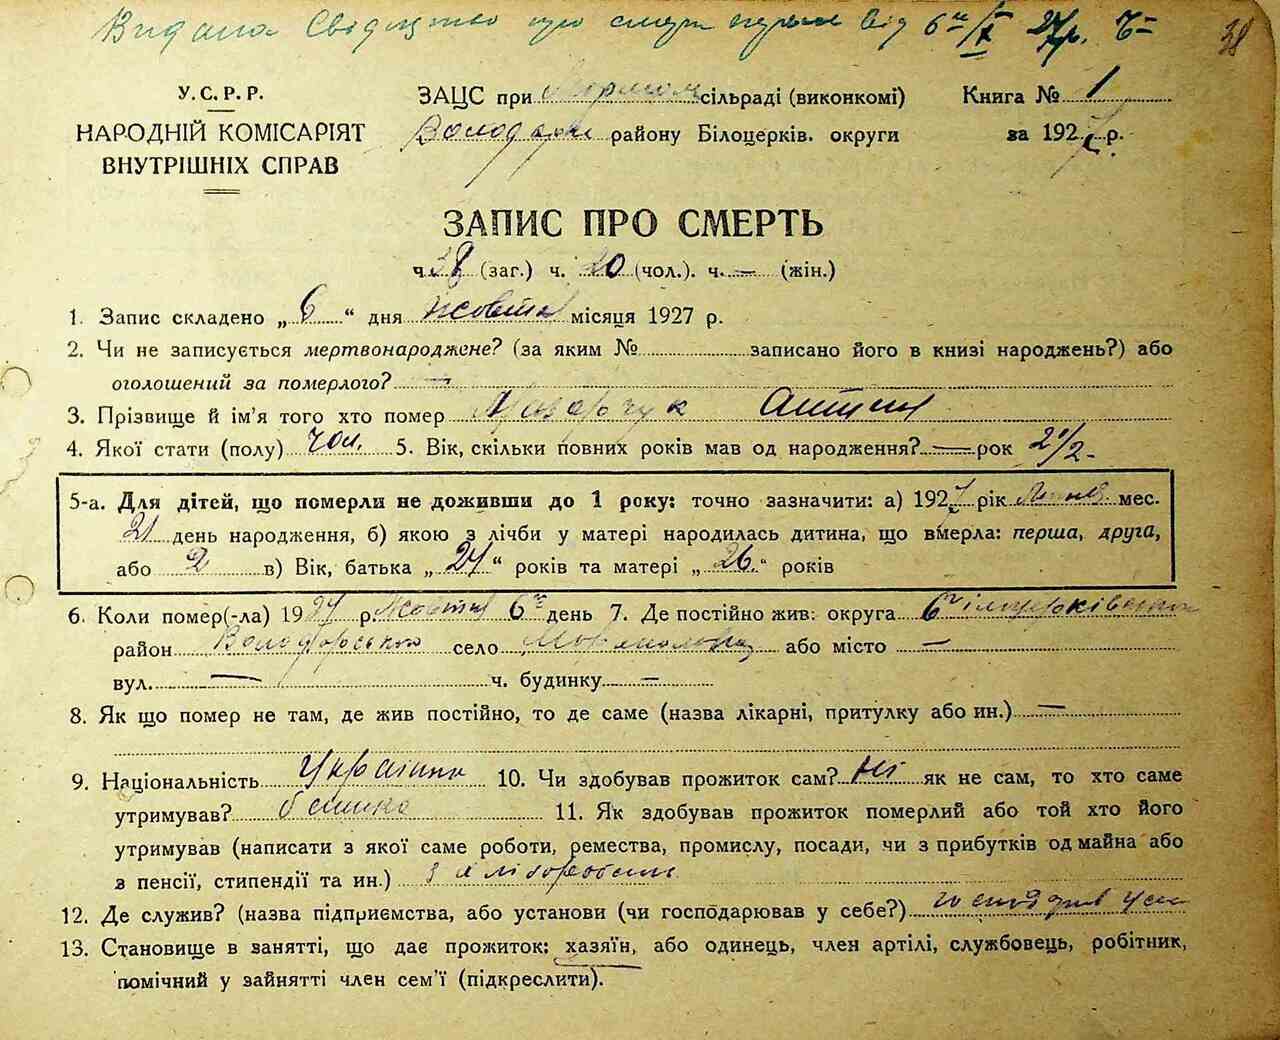 Видана Свідоцтво про смерть від 6 27 р.
38
У.С.Р.Р.
НАРОДНІЙ КОМІСАРІЯТ
ВНУТРІШНІХ СПРАВ
ЗАЦС при сільраді (виконкомі)
Володарськ району Білоцерків. округи
Книга № 1
за 1927 р.
ЗАПИС ПРО СМЕРТЬ
ч. 38 (заг.) ч. 20 (чол.). ч. — (жін.)
1. Запис складено „ 6 “ дня жовтня місяця 1927 р.
2. Чи не записується мертвонароджене? (за яким № записано його в книзі народжень?) або
оголошений за померлого? —
3. Прізвище й ім'я того хто помер
4. Якої стати (полу) чол. 5. Вік, скільки повних років мав од народження? — рок 2 1/2
5-а. Для дітей, що померли не доживши до 1 року: точно зазначити: а) 1927 рік мес.
21 день народження, б) якою з лічби у матері народилась дитина, що вмерла: перша, друга,
або 2 в) Вік, батька „ 27 “ років та матері „ 26. “ років
6. Коли помер(-ла) 1927 р. жовтня 6 день 7. Де постійно жив: округа Білоцерківська
район Володарського село або місто —
вул. — ч. будинку —
8. Як що помер не там, де жив постійно, то де саме (назва лікарні, притулку або ин.) —
9. Національність Українец 10. Чи здобував прожиток сам? Ні як не сам, то хто саме
утримував? батько 11. Як здобував прожиток померлий або той хто його
утримував (написати з якої саме роботи, ремества, промислу, посади, чи з прибутків од майна або
з пенсії, стипендії та ин.) з хліборобства
12. Де служив? (назва підприємства, або установи (чи господарював у себе?) господарив у себе
13. Становище в занятті, що дає прожиток: хазяїн, або одинець, член артілі, службовець, робітник,
помічний у зайнятті член сем'ї (підкреслити).